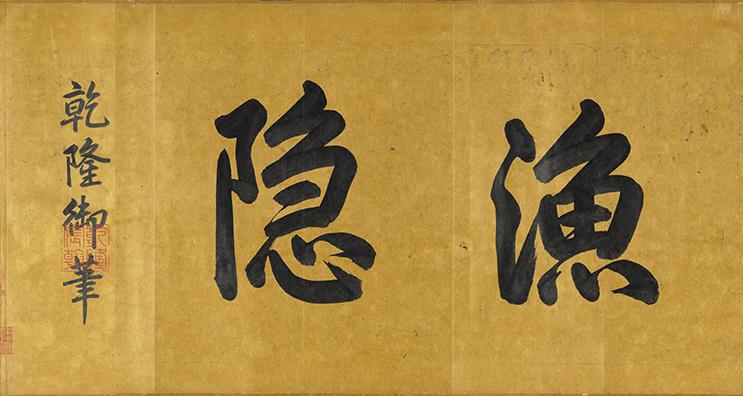 漁隐
乾隆御筆